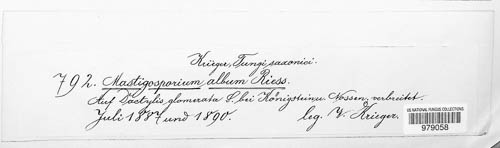 Krieger, Fungi saxonici.
792. Mastigosporium album Riess.
Auf Dactylis glomerata L. bei Königstein u. Nossen, verbreitet.
Juli 1887 und 1890. leg. W. Krieger.
US NATIONAL FUNGUS COLLECTIONS
979058